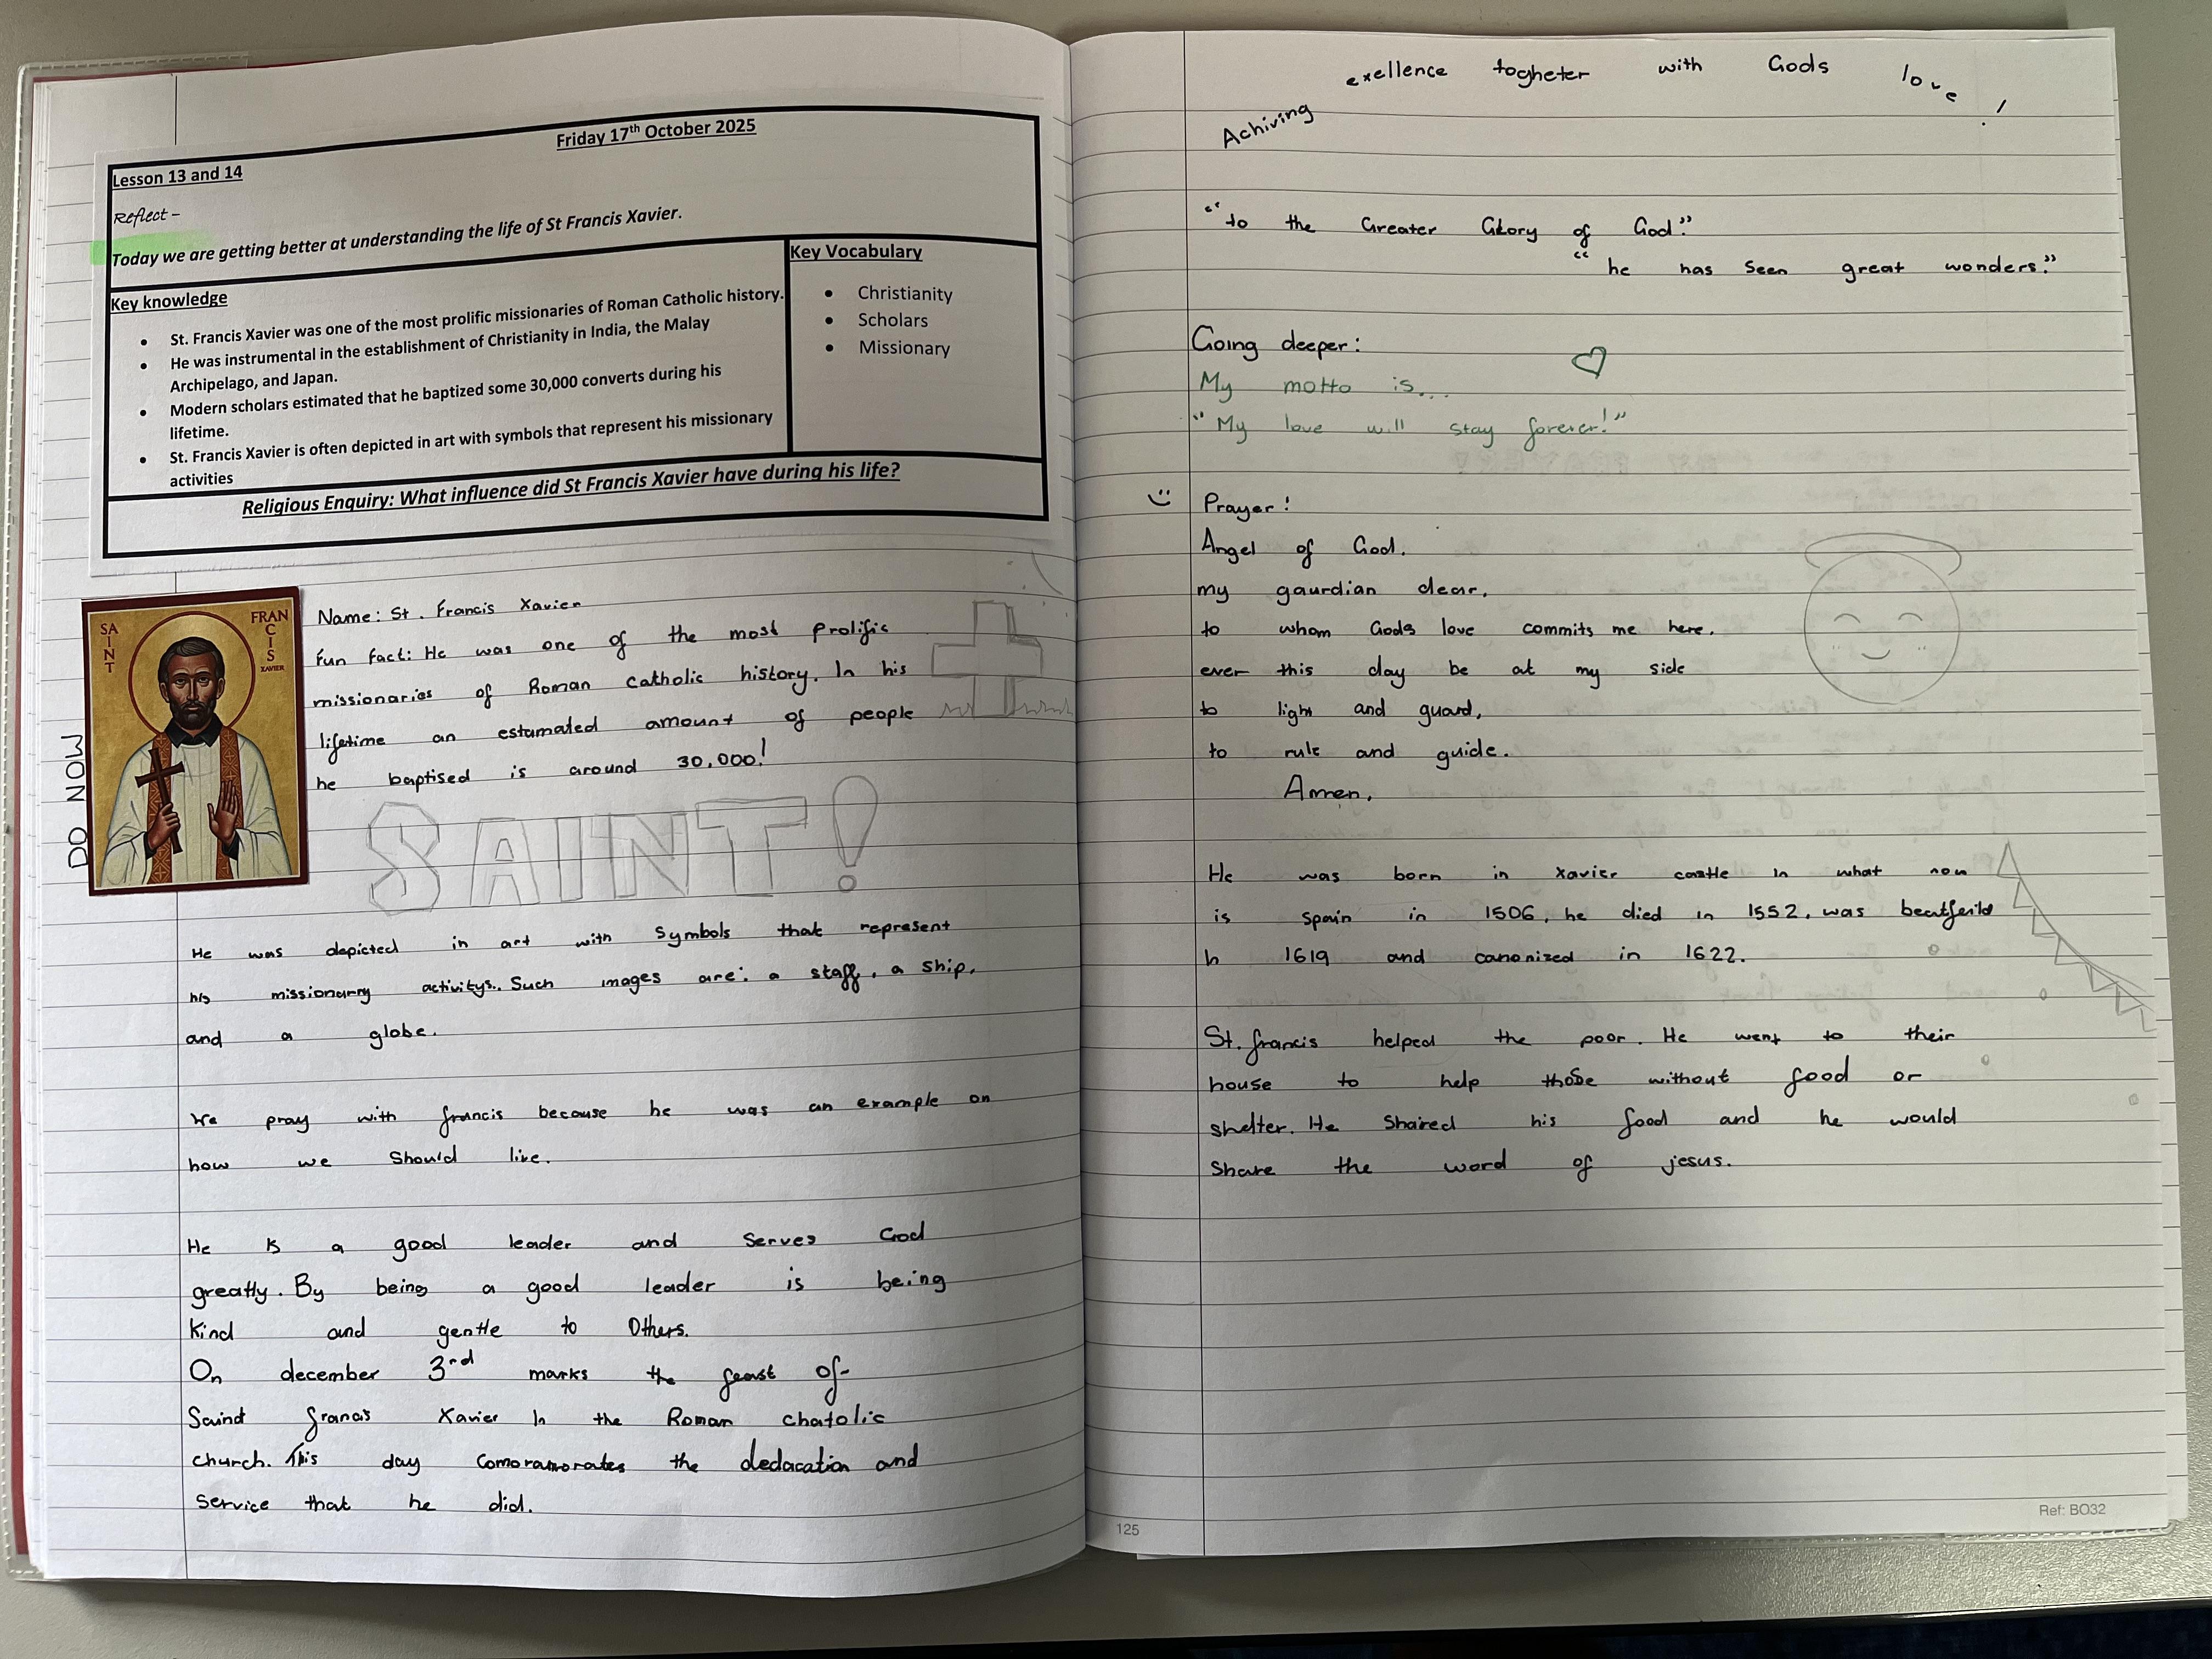 Friday 17th October 2025
Lesson 13 and 14
Reflect –
Today we are getting better at understanding the life of St Francis Xavier.
Key knowledge
• St. Francis Xavier was one of the most prolific missionaries of Roman Catholic history.
• He was instrumental in the establishment of Christianity in India, the Malay
Archipelago, and Japan.
• Modern scholars estimated that he baptized some 30,000 converts during his
lifetime.
• St. Francis Xavier is often depicted in art with symbols that represent his missionary
activities
Key Vocabulary
• Christianity
• Scholars
• Missionary
Religious Enquiry: What influence did St Francis Xavier have during his life?
DO NOW
SAINT
FRANCIS
XAVIER
Name: St. Francis Xavier
Fun fact: He was one of the most prolific
missionaries of Roman Catholic history. In his
lifetime an estamated amount of people
he baptised is around 30,000!
SAINT!
He was depicted in art with symbols that represent
his missionarry activitys. Such images are: a staff, a ship,
and a globe.
We pray with francis because he was an example on
how we should live.
He is a good leader and serves God
greatly. By being a good leader is being
Kind and gentle to Others.
On december 3rd marks the feast of-
Saind francis Xavier In the Roman chatolic
church. This day the dedacation and
service that he did.
Achiving exellence togheter with Gods love!
"to the Greater Glory of God."
"he has seen great wonders."
Going deeper:
My motto is...
"My love will stay forever!"
Prayer:
Angel of God.
my gaurdian dear,
to whom Gods love commits me here,
ever this day be at my side
to light and guard,
to rule and guide.
Amen.
He was born in Xavier castle in what now
is spain in 1506, he died in 1552, was beatfeild
in 1619 and canonized in 1622.
St. francis helped the poor. He went to their
house to help those without food or
shelter. He shared his food and he would
share the word of jesus.
125
Ref: BO32